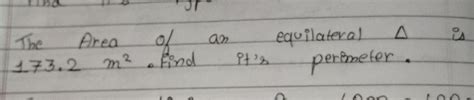 The Area of an equilateral Δ is
173.2 m². Find it's perimeter.